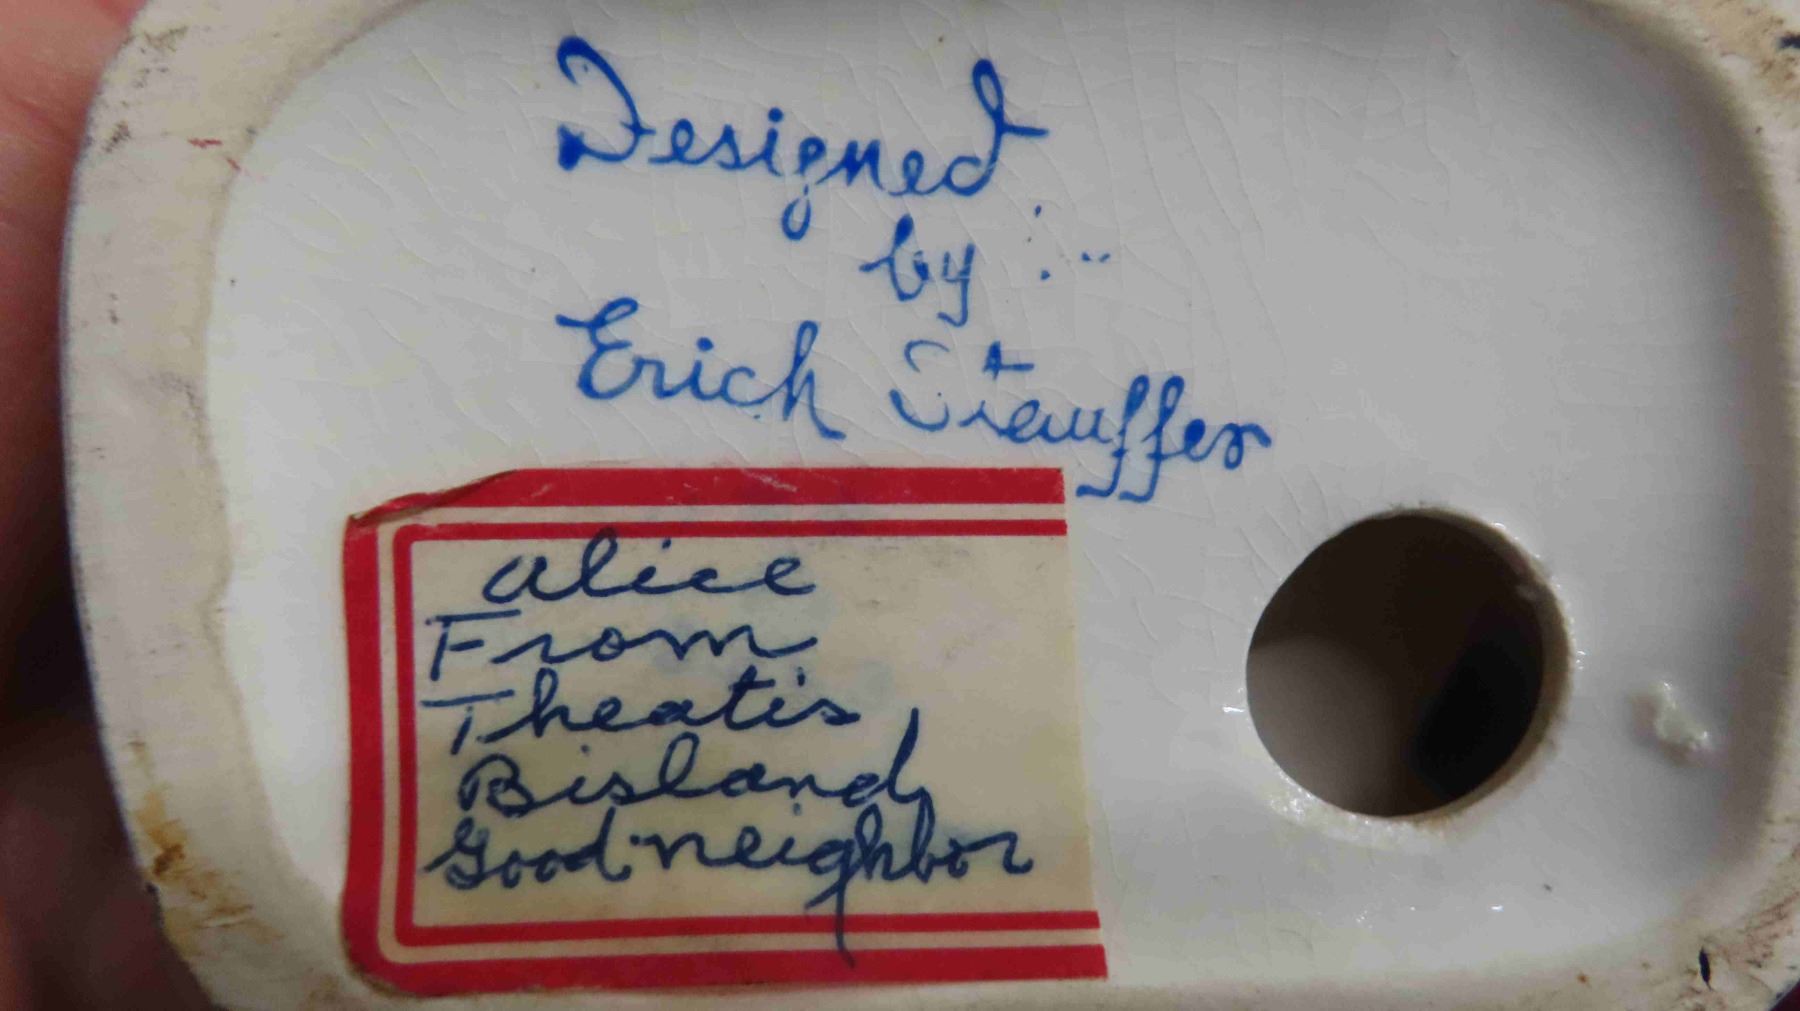 Designed
by
Erich Stauffer
Alice
From
Theatis
Bisland
Good neighbor